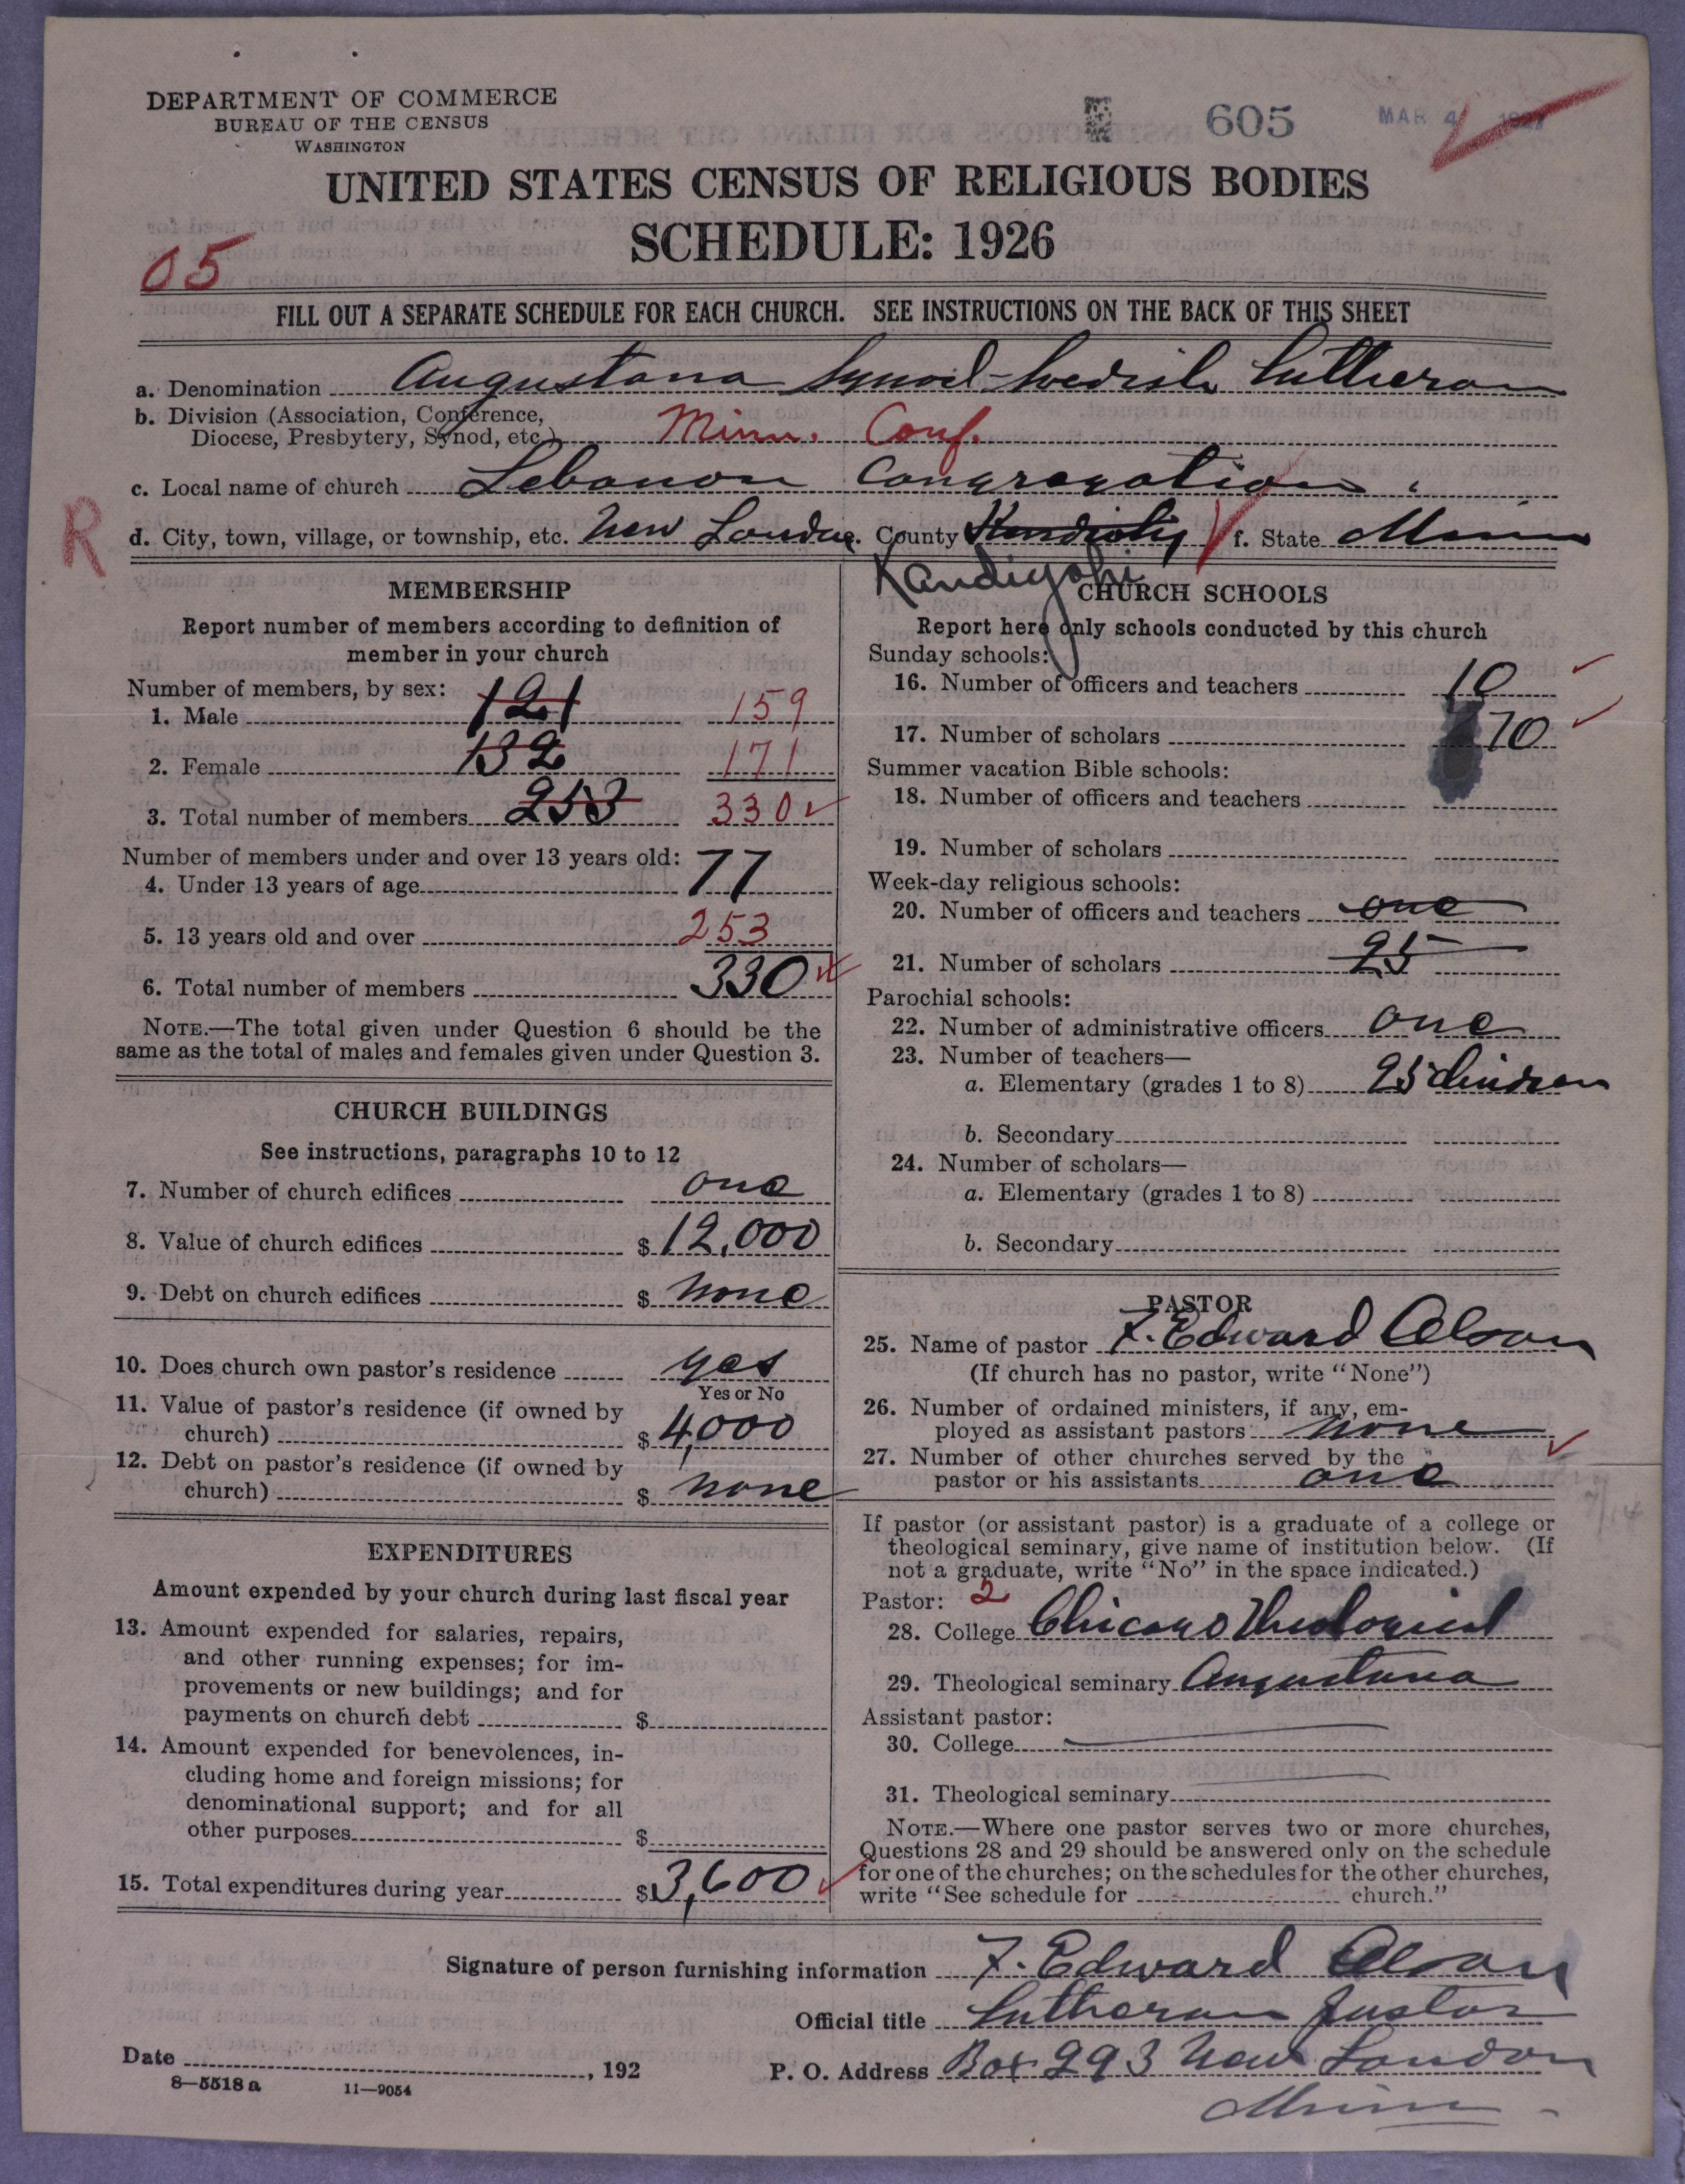 DEPARTMENT OF COMMERCE
BUREAU OF THE CENSUS
WASHINGTON
605
MAR 4 1927
UNITED STATES CENSUS OF RELIGIOUS BODIES
SCHEDULE: 1926
05
FILL OUT A SEPARATE SCHEDULE FOR EACH CHURCH. SEE INSTRUCTIONS ON THE BACK OF THIS SHEET
a. Denomination Augustana Synod-Swedish Lutheran
b. Division (Association, Conference,
Diocese, Presbytery, Synod, etc.) Minn. Conf.
c. Local name of church Lebanon Congregation
R
d. City, town, village, or township, etc. New London e. County Kandiyohi f. State Minn
Kandiyohi
MEMBERSHIP
Report number of members according to definition of
member in your church
Number of members, by sex:
1. Male 121 159
2. Female 132 171
3. Total number of members 253 330
Number of members under and over 13 years old:
4. Under 13 years of age 77
5. 13 years old and over 253
6. Total number of members 330
NOTE.—The total given under Question 6 should be the
same as the total of males and females given under Question 3.
CHURCH BUILDINGS
See instructions, paragraphs 10 to 12
7. Number of church edifices one
8. Value of church edifices $ 12,000
9. Debt on church edifices $ none
10. Does church own pastor's residence yes
Yes or No
11. Value of pastor's residence (if owned by
church) $ 4,000
12. Debt on pastor's residence (if owned by
church) $ none
EXPENDITURES
Amount expended by your church during last fiscal year
13. Amount expended for salaries, repairs,
and other running expenses; for im-
provements or new buildings; and for
payments on church debt $
14. Amount expended for benevolences, in-
cluding home and foreign missions; for
denominational support; and for all
other purposes $
15. Total expenditures during year $ 3,600
CHURCH SCHOOLS
Report here only schools conducted by this church
Sunday schools:
16. Number of officers and teachers 10
17. Number of scholars 70
Summer vacation Bible schools:
18. Number of officers and teachers
19. Number of scholars
Week-day religious schools:
20. Number of officers and teachers one
21. Number of scholars 25
Parochial schools:
22. Number of administrative officers one
23. Number of teachers—
a. Elementary (grades 1 to 8) 25 children
b. Secondary
24. Number of scholars—
a. Elementary (grades 1 to 8)
b. Secondary
PASTOR
25. Name of pastor F. Edward Olson
(If church has no pastor, write "None")
26. Number of ordained ministers, if any, em-
ployed as assistant pastors none
27. Number of other churches served by the
pastor or his assistants one
If pastor (or assistant pastor) is a graduate of a college or
theological seminary, give name of institution below. (If
not a graduate, write "No" in the space indicated.)
Pastor: 2
28. College Chicago Theological
29. Theological seminary Augustana
Assistant pastor:
30. College
31. Theological seminary
NOTE.—Where one pastor serves two or more churches,
Questions 28 and 29 should be answered only on the schedule
for one of the churches; on the schedules for the other churches,
write "See schedule for church."
Signature of person furnishing information F. Edward Olson
Official title Lutheran Pastor
Date , 192
P. O. Address Box 293 New London
Minn
8—5518 a 11—9054